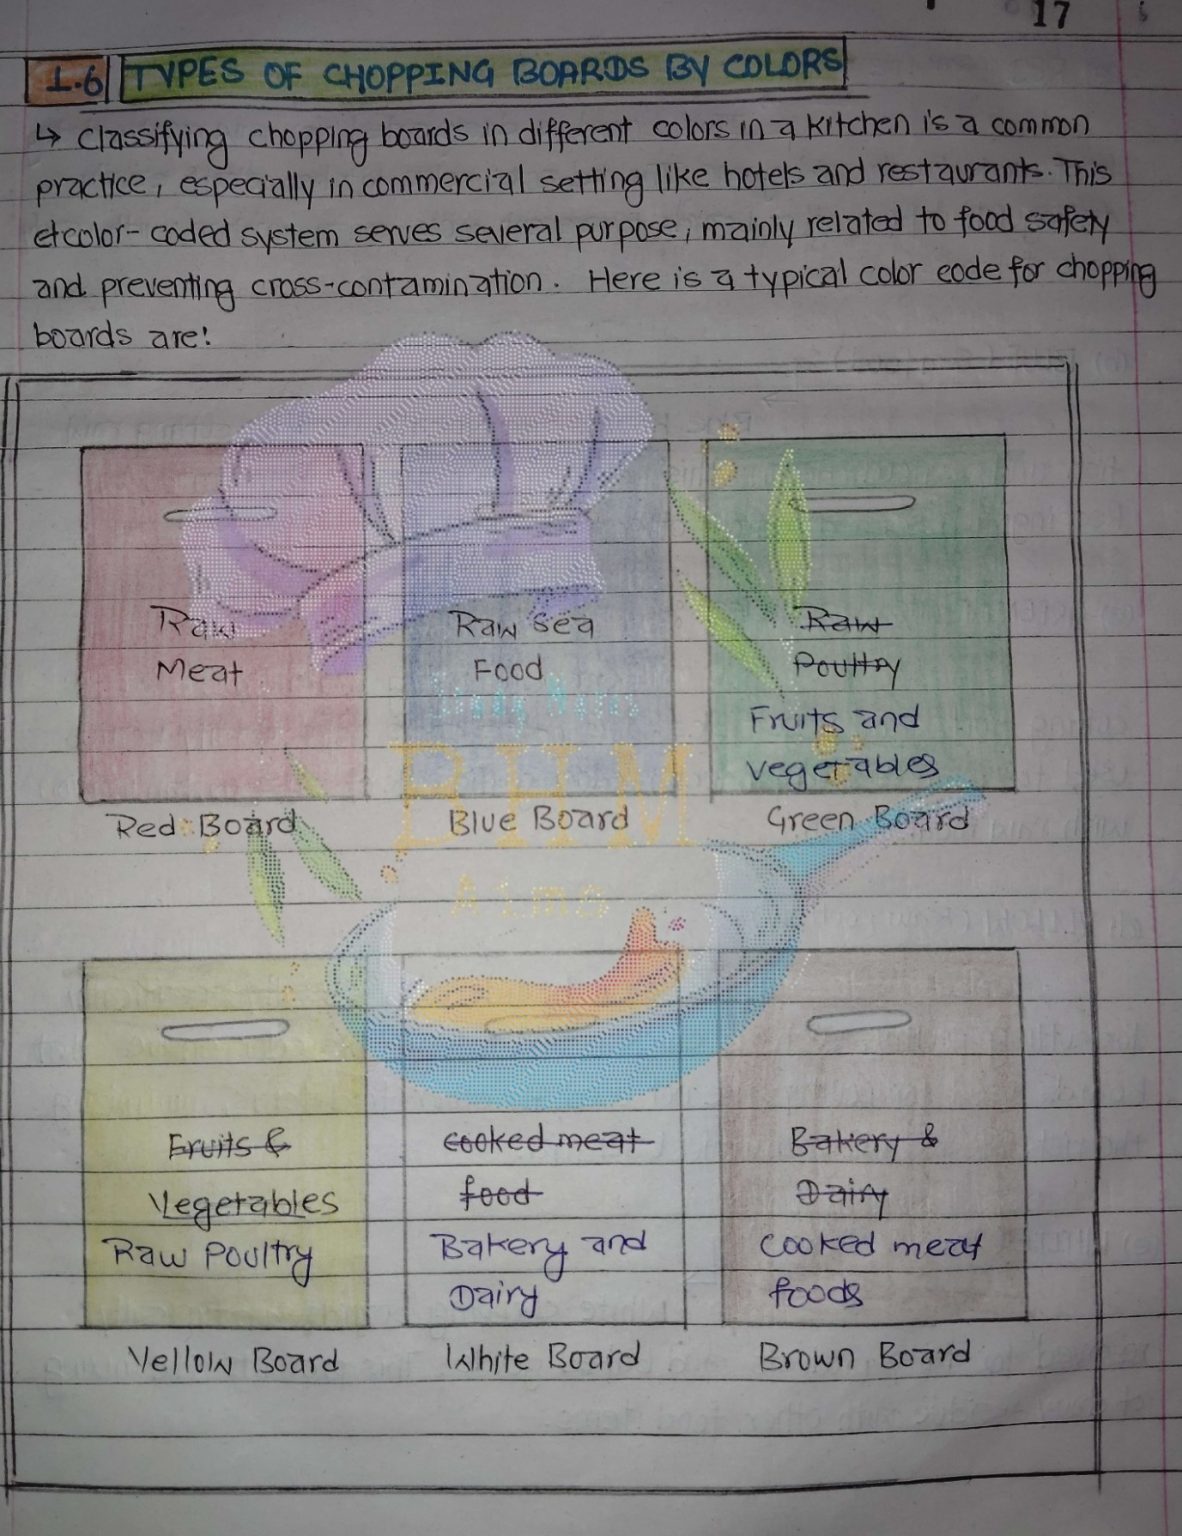 17
1.6 TYPES OF CHOPPING BOARDS BY COLORS
↳ Classifying chopping boards in different colors in a kitchen is a common
practice, especially in commercial setting like hotels and restaurants. This
etcolor-coded system serves several purpose, mainly related to food safety
and preventing cross-contamination. Here is a typical color code for chopping
boards are:
Raw
Meat
Red Board
Raw sea
Food
Blue Board
Raw
Poultry
Fruits and
vegetables
Green Board
BHM
Fruits &
Vegetables
Raw Poultry
Yellow Board
cooked meat
food
Bakery and
Dairy
White Board
Bakery &
Dairy
cooked meat
foods
Brown Board